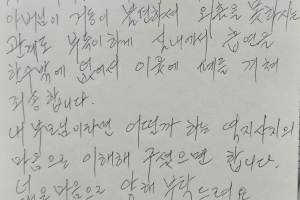 아버님이 거동이 불편하셔 외출을 못하시는
관계로 부득이하게 실내에서 흡연을
할수밖에 없어서 이웃에 폐를 끼쳐
죄송합니다.
내 부모님이라면 어떨까 하는 역지사지의
마음으로 이해해 주셨으면 합니다.
넓은마음으로 양해 부탁드려요